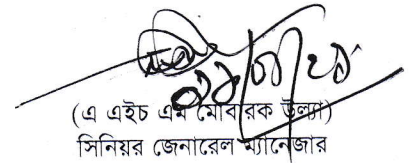 (এ এইচ এম মোবারক উল্যা)
সিনিয়র জেনারেল ম্যানেজার